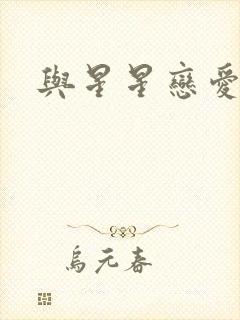 與星星戀愛
烏元春